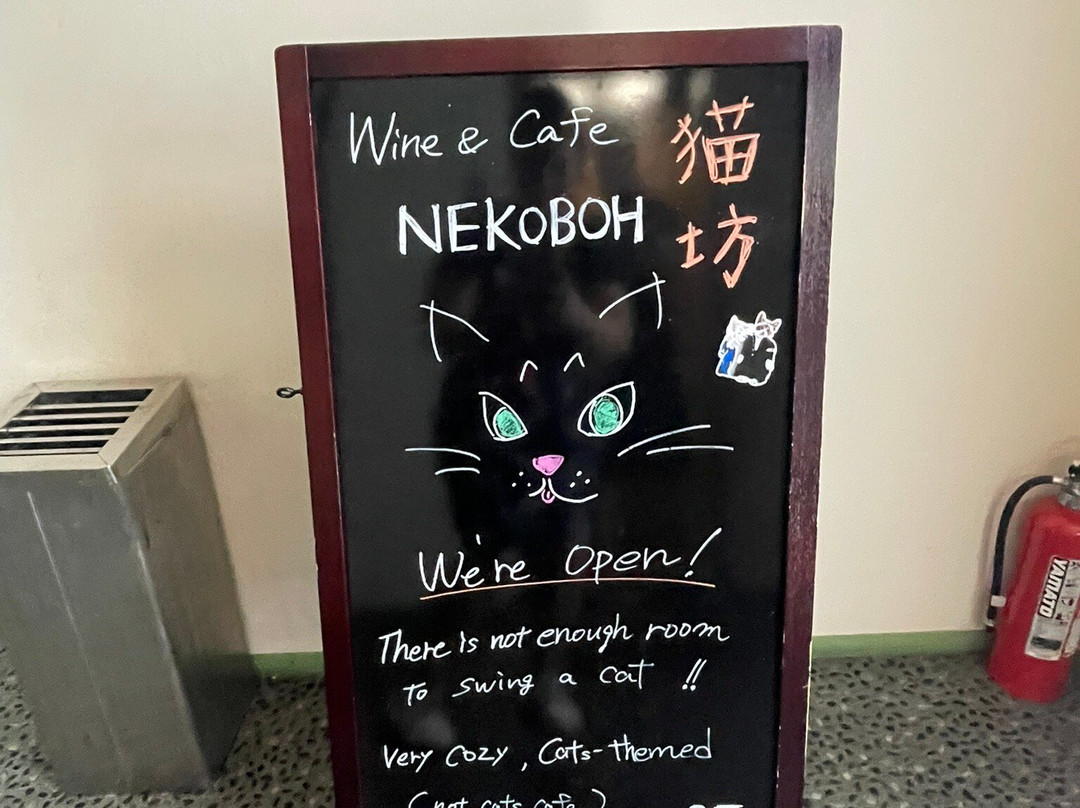 Wine & Cafe
猫坊
NEKOBOH
We're Open!
There is not enough room
to swing a cat !!
Very cozy, Cats-themed
(not cats cafe)
YAMATO